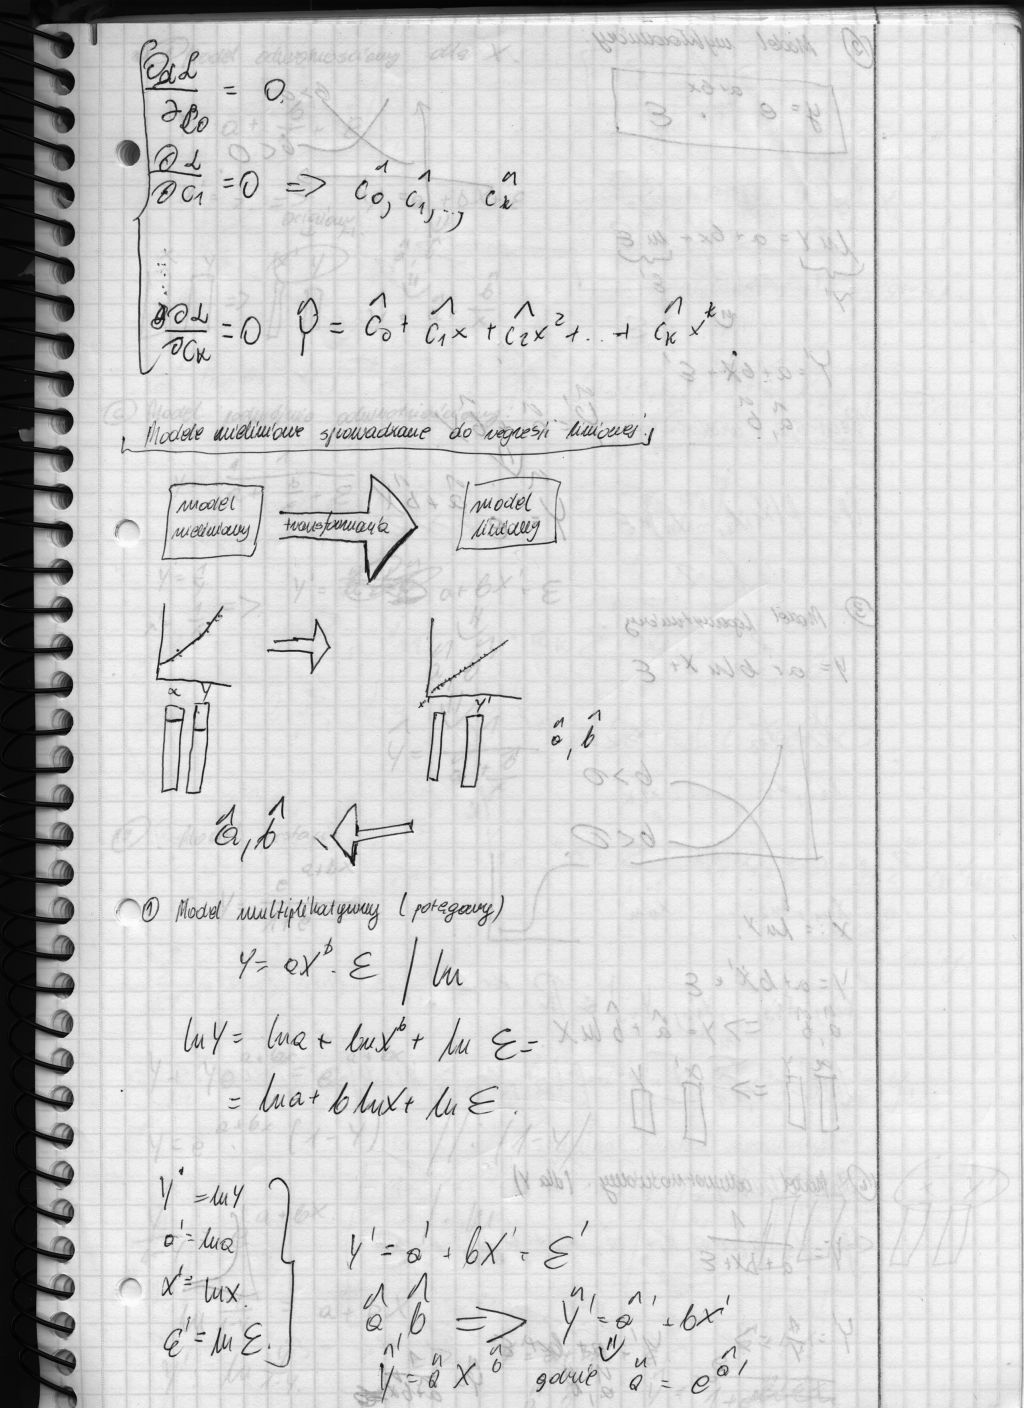 ∂L/∂c₀ = 0
∂L/∂c₁ = 0 => ĉ₀, ĉ₁, .., ĉₖ
......
∂L/∂cₖ = 0 Ŷ = ĉ₀ + ĉ₁x + ĉ₂x² + ... + ĉₖxᵏ
Modele nieliniowe sprowadzane do regresji liniowej
model nieliniowy transformacja model liniowy
x Y x' Y'
â, b̂
â, b̂
① Model multiplikatywny (potęgowy)
Y = aXᵇ · ε / ln
lnY = lna + lnXᵇ + ln ε =
= lna + b lnX + ln ε.
Y' = lnY
a' = lna
x' = lnx.
ε' = ln ε.
Y' = a' + bX' + ε'
â b̂ => Ŷ' = â' + bX'
Ŷ' = â X^b̂ gdzie â = e^â'